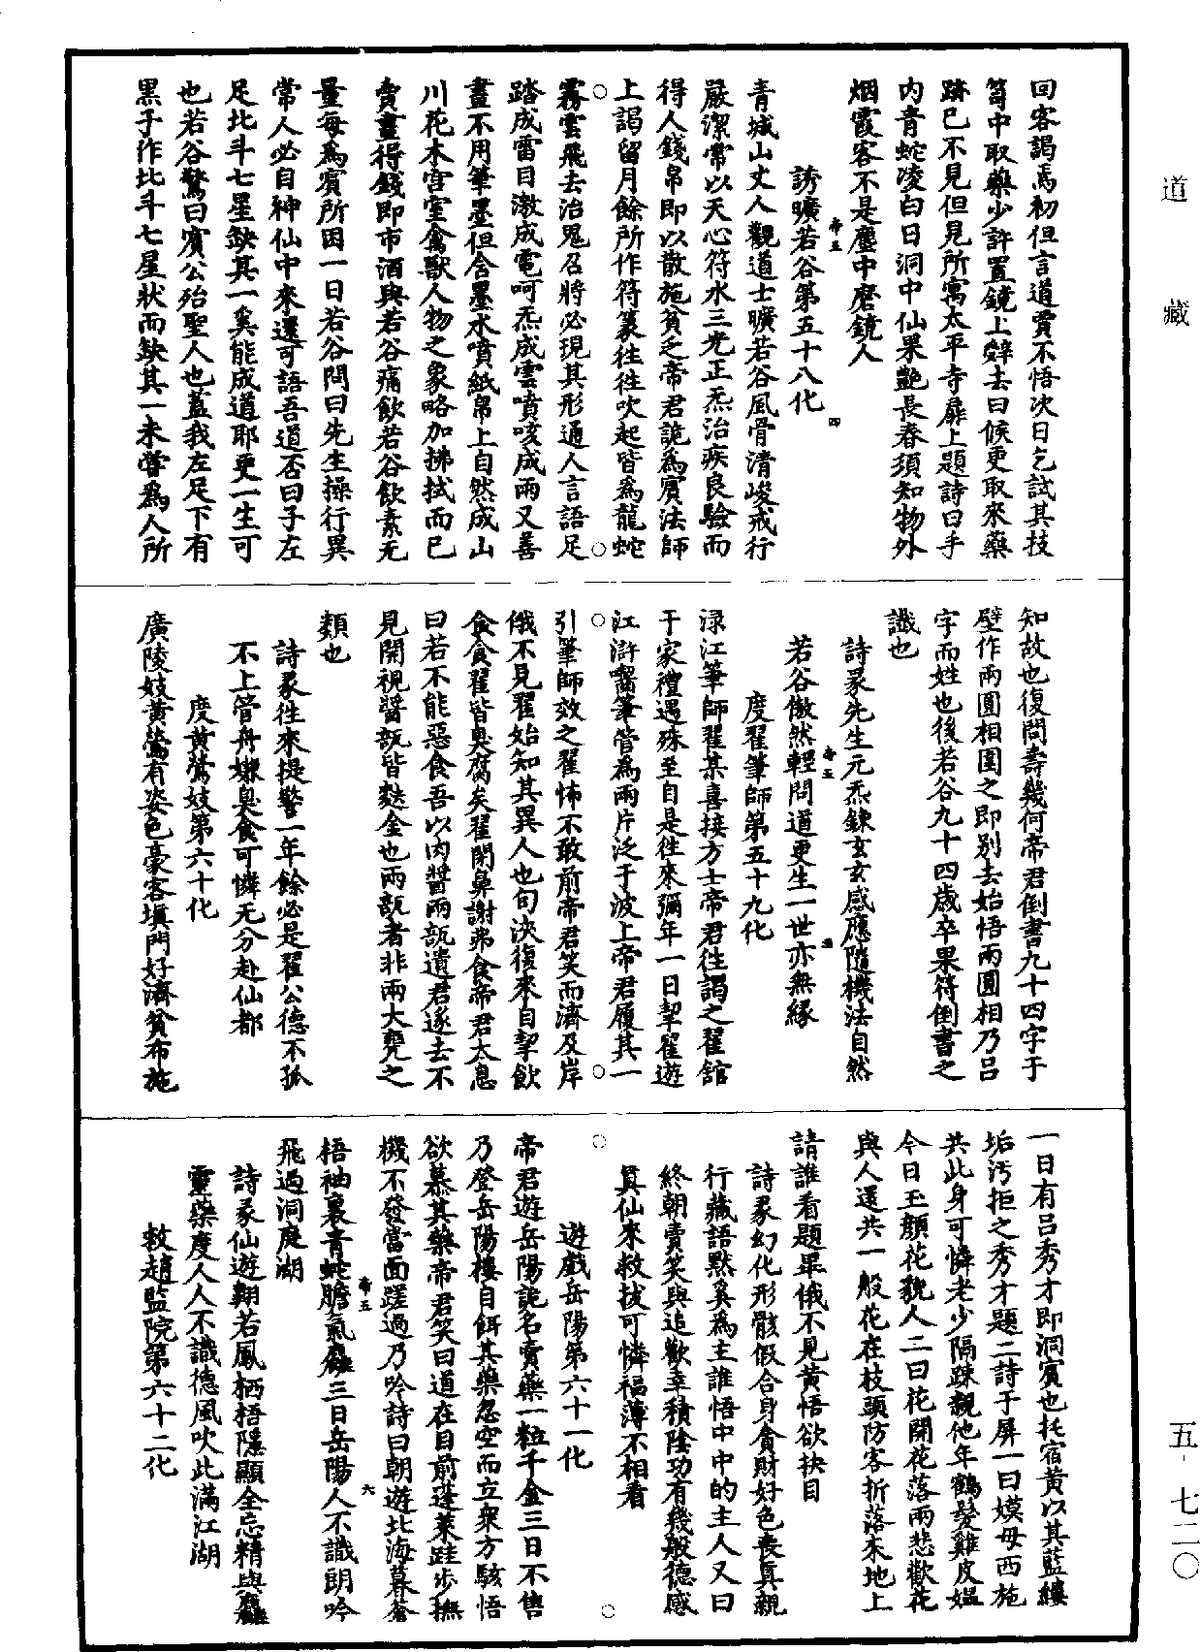 道藏
五-七二〇
回客謁馬初但言道賈不悟次日乞試其技
笥中取藥少許置鏡上辭去曰候更取來藥
跡已不見但見所寓太平寺扉上題詩曰手
内青蛇凌白日洞中仙果艷長春須知物外
烟霞客不是塵中磨鏡人
誘曠若谷第五十八化
帝五
四
青城山丈人觀道士曠若谷風骨清峻戒行
嚴潔常以天心符水三光正炁治疾良驗而
得人錢帛即以散施貧乏帝君詭為賓法師
上謁留月餘所作符篆往往吹起皆為龍蛇
霧雲飛去治鬼召將必現其形通人言語足
踏成雷目激成電呵炁成雲噴咳成雨又善
畫不用筆墨但含墨水噴紙帛上自然成山
川花木宫室禽獸人物之象略加拂拭而已
賣畫得錢即市酒與若谷痛飲若谷飲素无
量每為賓所困一日若谷問曰先生操行異
常人必自神仙中來還可語吾道否曰子左
足北斗七星缺其一奚能成道耶更一生可
也若谷驚曰賓公殆聖人也蓋我左足下有
黑子作北斗七星狀而缺其一未嘗為人所
知故也復問壽幾何帝君倒書九十四字于
壁作兩圓相圍之即別去始悟兩圓相乃吕
字而姓也後若谷九十四歲卒果符倒書之
讖也
詩彖先生元炁鍊玄玄感應隨機法自然
若谷傲然輕問道更生一世亦無緣
帝五
五
度翟筆師第五十九化
渌江筆師翟某喜接方士帝君往謁之翟舘
于家禮遇殊至自是往來彌年一日挈翟遊
江滸嚙筆管為兩片泛于波上帝君履其一
引筆師效之翟怖不敢前帝君笑而濟及岸
俄不見翟始知其異人也旬浹復來自挈飲
食食翟皆臭腐矣翟閉鼻謝弗食帝君太息
曰若不能惡食吾以肉醬兩瓿遺君遂去不
見開視醬瓿皆麩金也兩瓿者非兩大甕之
類也
詩彖往來提警一年餘必是翟公德不孤
不上管舟嫌臭食可憐无分赴仙都
度黄鶯妓第六十化
廣陵妓黄鶯有姿色豪客填門好濟貧布施
一日有吕秀才即洞賓也托宿黄以其藍縷
垢污拒之秀才題二詩于屏一曰嫫母西施
共此身可憐老少隔踈親他年鶴髮雞皮媪
今日玉顏花貌人二曰花開花落兩悲歡花
與人還共一般花在枝頭防客折落來地上
請誰看題畢俄不見黄悟欲抉目
詩彖幻化形骸假合身貪財好色喪真親
行藏語默奚為主誰悟中中的主人又曰
終朝賣笑與追歡幸積陰功有幾般德感
真仙來救拔可憐福薄不相看
遊戲岳陽第六十一化
帝君遊岳陽詭名賣藥一粒千金三日不售
乃登岳陽樓自餌其藥忽空而立衆方駭悟
欲慕其藥帝君笑曰道在目前蓬萊跬步撫
機不發當面蹉過乃吟詩曰朝遊北海暮蒼
梧袖裏青蛇膽氣麤三日岳陽人不識朗吟
飛過洞庭湖
帝五
六
詩彖仙遊翺若鳳栖梧隱顯全忘精與麤
靈藥度人人不識德風吹此滿江湖
救趙監院第六十二化